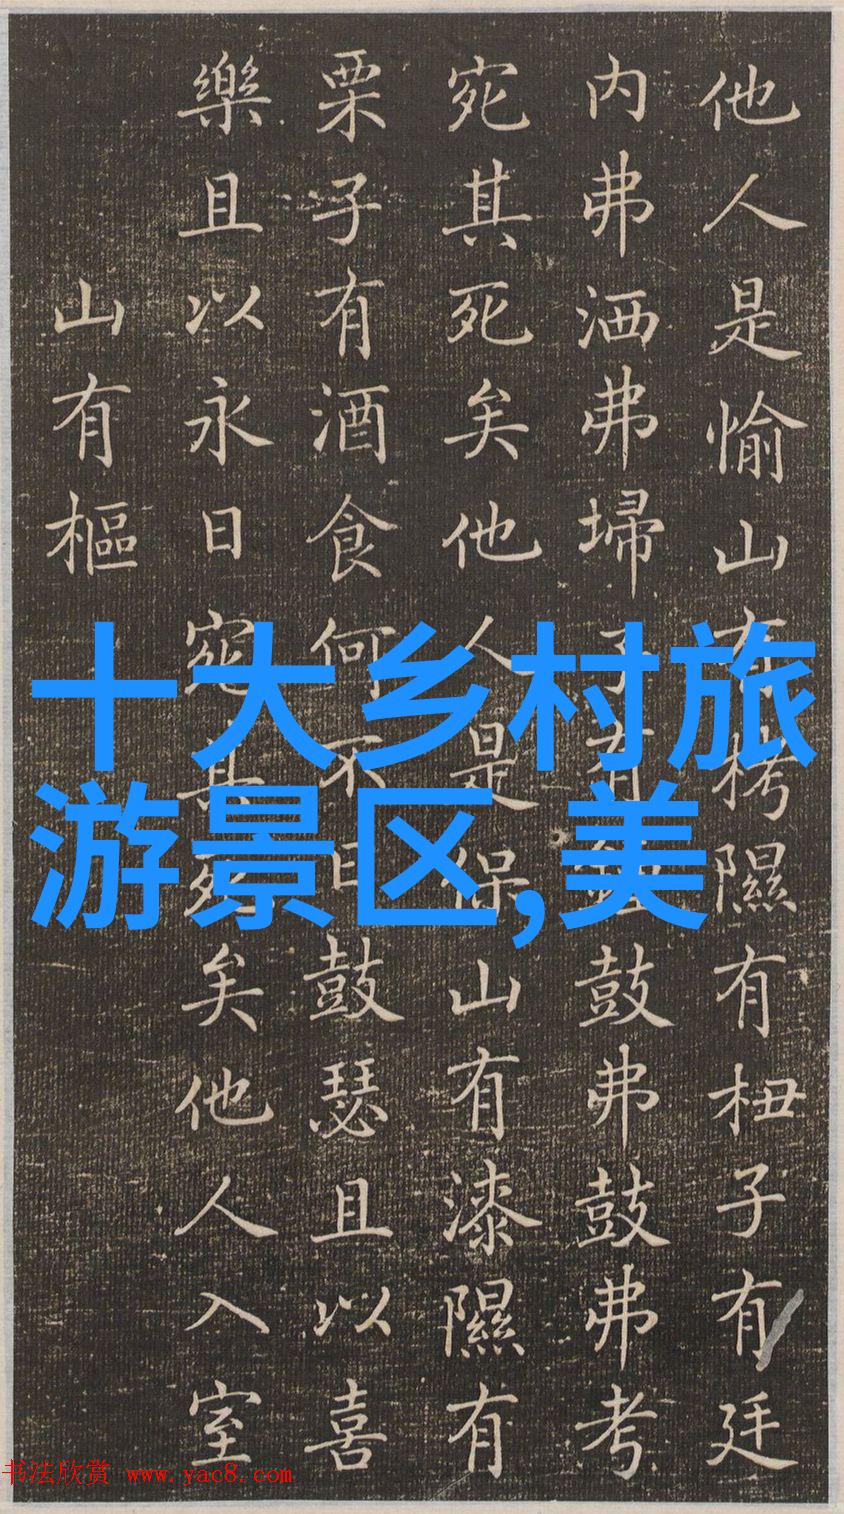 他人是愉山有栲隰有杻子有廷
内弗洒弗埽子有鼓弗鼓弗考
宛其死矣他人是保山有漆隰有
栗子有酒食何不日鼓瑟且以喜
樂且以永日宛其死矣他人入室
山有樞
十大乡村旅
游景区,美
书法欣赏 www.yac8.com